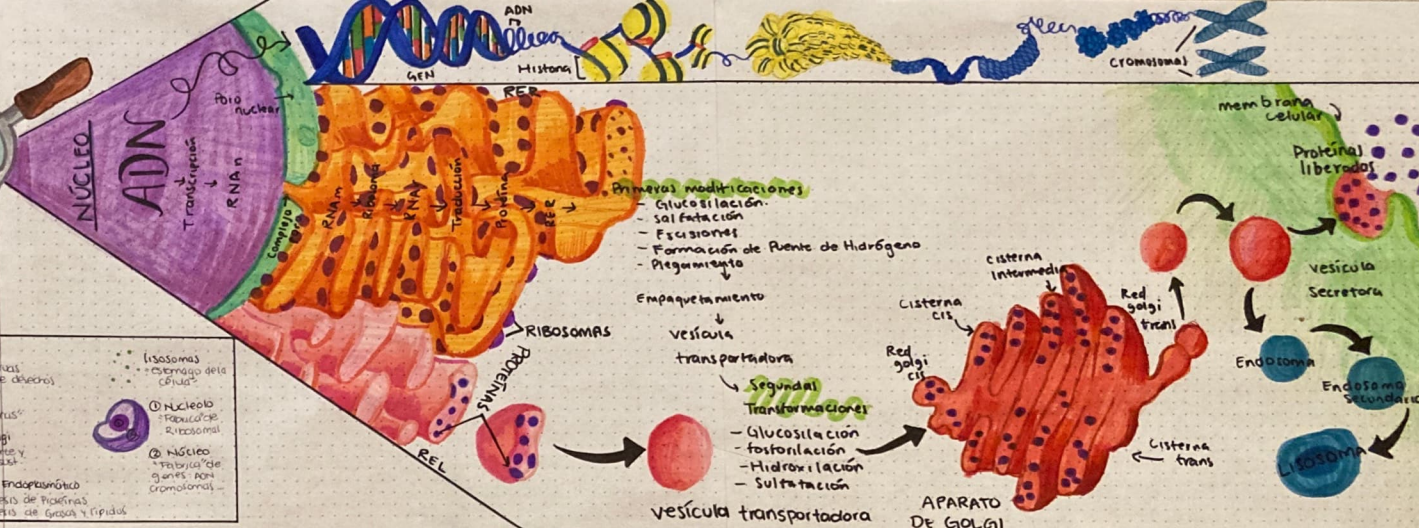 ADN
GEN
Histona
Cromosomas
NÚCLEO
ADN
Transcripción
RNAm
Poro
nuclear
Complejo
RER
RNAm
Ribosoma
RNAt
Traducción
Proteína
RER
RIBOSOMAS
PROTEÍNAS
REL
Primeras modificaciones
- Glucosilación.
- Sulfatación
- Escisiones
- Formación de Puente de Hidrógeno
- Plegamiento
Empaquetamiento
vesícula
transportadora
Segundas
Transformaciones
- Glucosilación
- fosforilación
- Hidroxilación
- Sulfatación
vesícula transportadora
Red
golgi
cis
Cisterna
cis
cisterna
Intermedia
Red
golgi
trans
Cisterna
trans
APARATO
DE GOLGI
membrana
celular
Proteínas
liberadas
vesícula
Secretora
Endosoma
Endosoma
Secundario
LISOSOMA
lisosomas
"estomago de la
célula"
① Nucleolo
"Fabrica" de
Ribosomas
② Núcleo
"Fabrica" de
genes ADN
cromosomas
e desechos
Endoplasmático
esis de Proteínas
esis de Grasas y lípidos